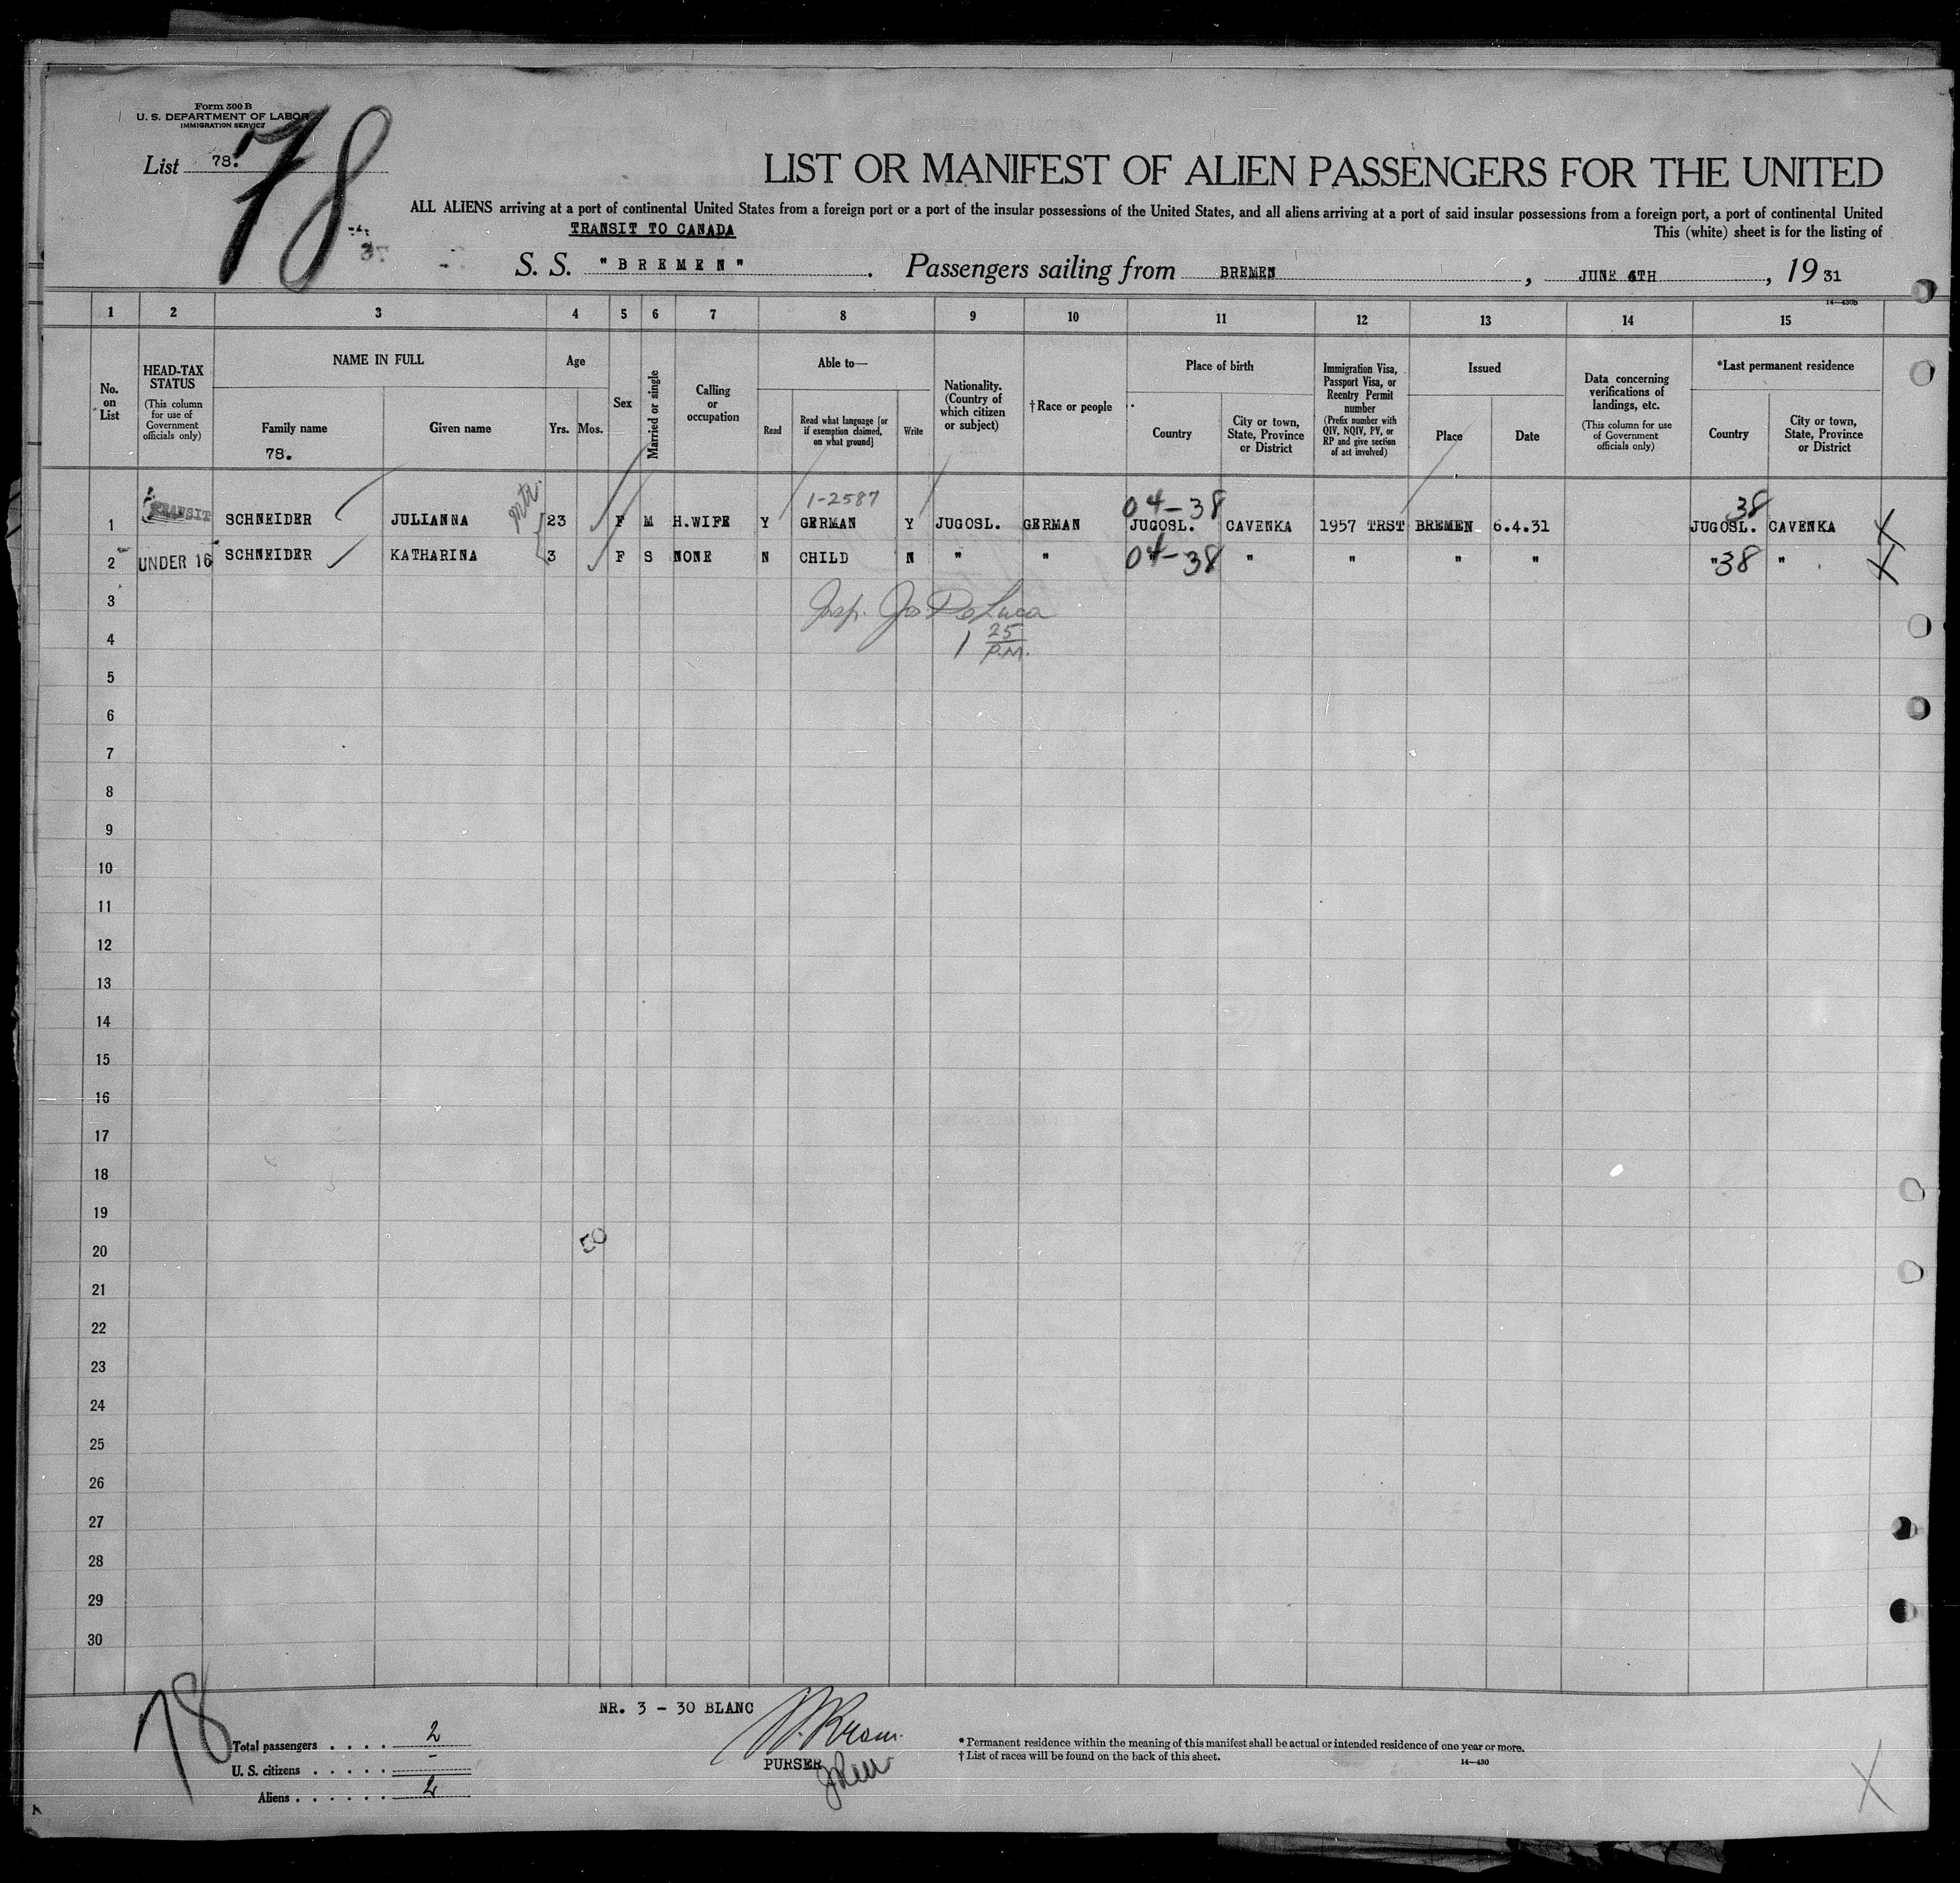 Form 500 B
U. S. DEPARTMENT OF LABOR
IMMIGRATION SERVICE
List 78.
78
LIST OR MANIFEST OF ALIEN PASSENGERS FOR THE UNITED
ALL ALIENS arriving at a port of continental United States from a foreign port or a port of the insular possessions of the United States, and all aliens arriving at a port of said insular possessions from a foreign port, a port of continental United
TRANSIT TO CANADA
This (white) sheet is for the listing of
S. S. "BREMEN". Passengers sailing from BREMEN, JUNE 6TH, 19 31
14—430b
1 2 3 4 5 6 7 8 9 10 11 12 13 14 15
No. on List
HEAD-TAX STATUS (This column for use of Government officials only)
NAME IN FULL
Family name
78.
Given name
Age
Yrs. Mos.
Sex
Married or single
Calling or occupation
Able to—
Read
Read what language [or if exemption claimed, on what ground]
Write
Nationality. (Country of which citizen or subject)
† Race or people
Place of birth
Country
City or town, State, Province or District
Immigration Visa, Passport Visa, or Reentry Permit number (Prefix number with QIV, NQIV, PV, or RP and give section of act involved)
Issued
Place
Date
Data concerning verifications of landings, etc. (This column for use of Government officials only)
*Last permanent residence
Country
City or town, State, Province or District
mtr.
1-2587
04-38
38
1 TRANSIT SCHNEIDER JULIANNA 23 F M H.WIFE Y GERMAN Y JUGOSL. GERMAN JUGOSL. CAVENKA 1957 TRST BREMEN 6.4.31 JUGOSL. CAVENKA X
2 UNDER 16 SCHNEIDER KATHARINA 3 F S NONE N CHILD N " " 04-38 " " " " "38 " X
3
Insp. Jos DeLuca
4
1 25 P.M.
5
6
7
8
9
10
11
12
13
14
15
16
17
18
19
20
50
21
22
23
24
25
26
27
28
29
30
78
NR. 3 - 30 BLANC
Total passengers . . . . 2
U. S. citizens . . . . . -
Aliens . . . . . . 2
PURSER
* Permanent residence within the meaning of this manifest shall be actual or intended residence of one year or more.
† List of races will be found on the back of this sheet.
14—430
X